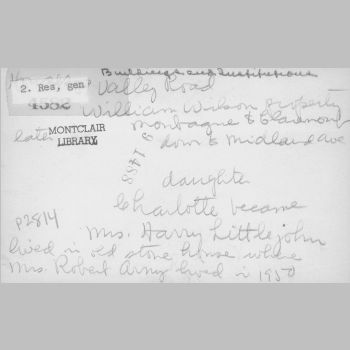 Buildings and Institutions
2. Res, gen Valley Road
4382 William Wilson property
later MONTCLAIR Montague & Claremont
LIBRARY down to Midland Ave
91488
daughter
Charlotte became
p2814 Mrs. Harry Littlejohn
lived in old stone house where
Mrs. Robert Army lived in 1950